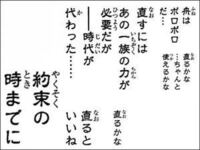 舟は
ボロボロ
だ…
…ちゃんと
使えるかな
直すには
あの一族の力が
必要だが
――時代が
代わった……
直るかな
直るかな
直ると
いいね
約束の
時までに